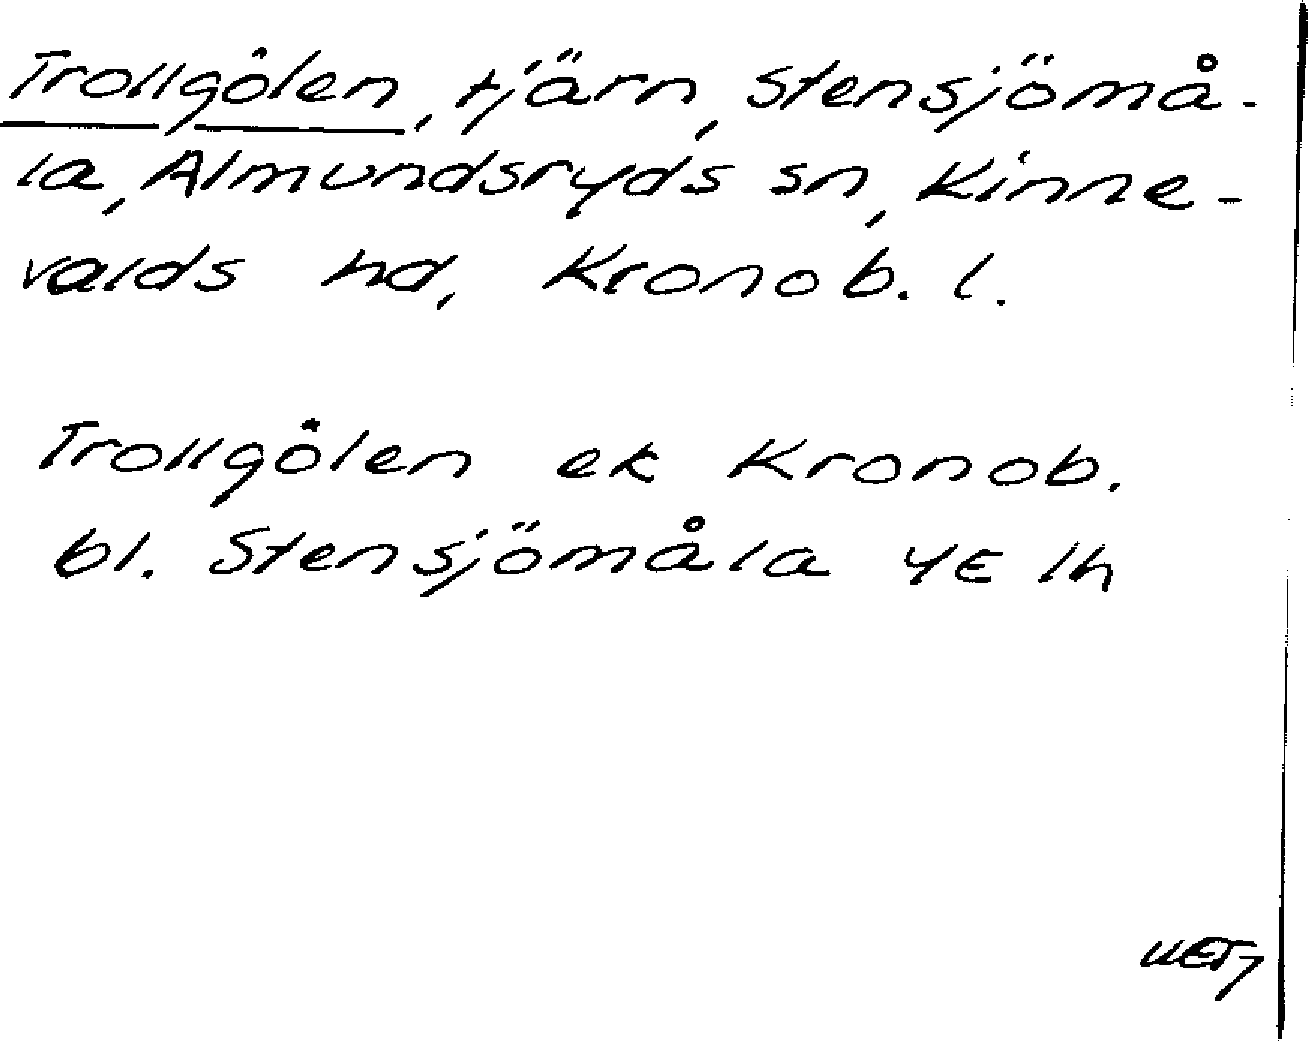 Trollgölen, tjärn, Stensjömå-
la, Almundsryds sn, Kinne-
valds hd, Kronob. l.
Trollgölen ek Kronob.
bl. Stensjömåla 4E lh